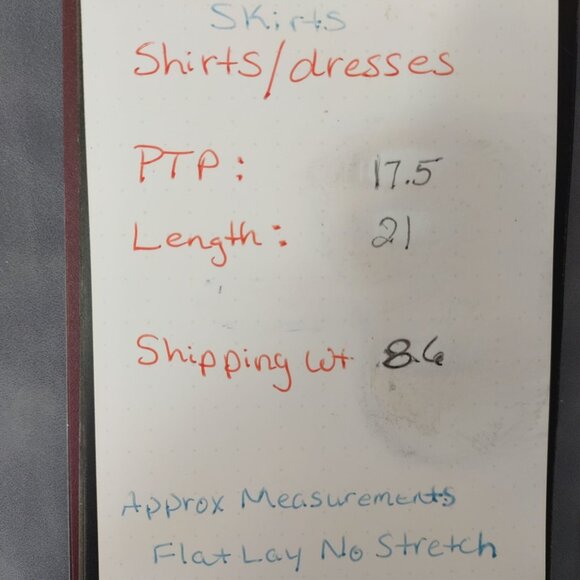 Skirts
Shirts/dresses
PTP: 17.5
Length: 21
Shipping Wt 8.6
Approx Measurements
Flat Lay No Stretch